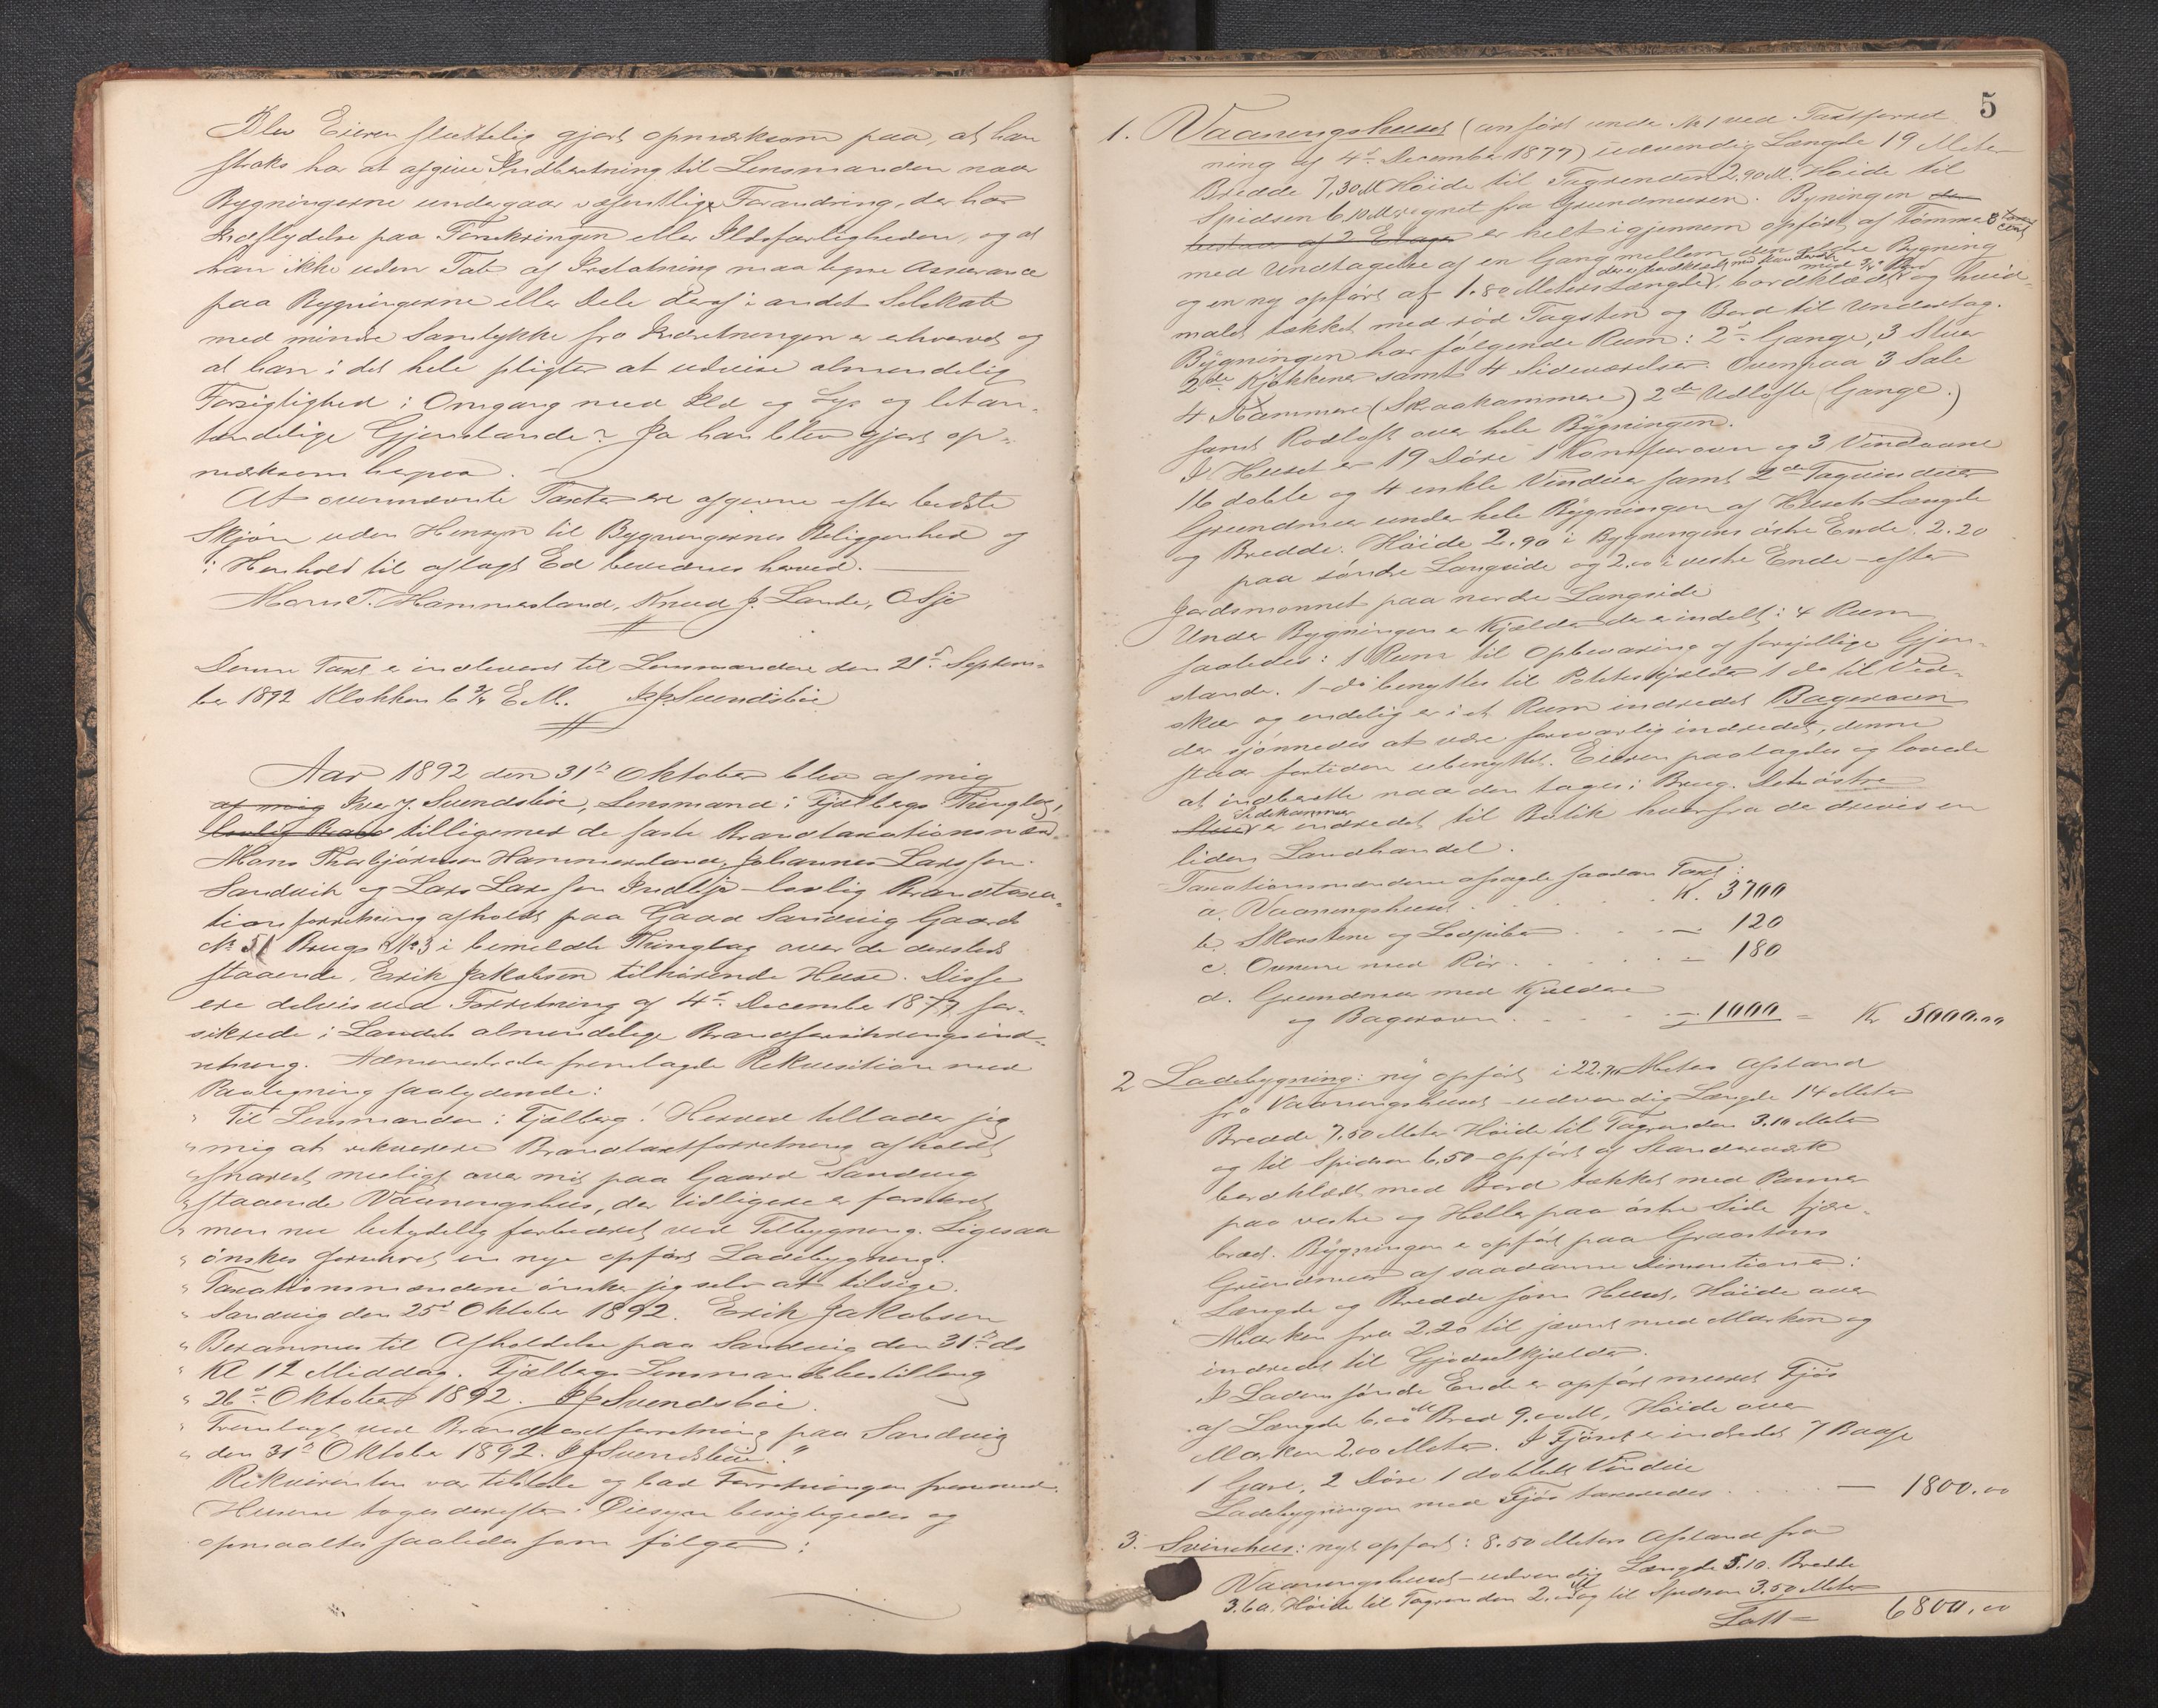 Blev Eieren sluttelig gjort opmærksom paa, at han
straks har at afgive Indberetning til Lensmanden naar
Bygningerne undergaar væsentlige Forandring, der har
Indflydelse paa Forsikringen eller Ildsfarligheden, og at
han ikke uden Tab af Erstatning maa tegne Assurance
paa Bygningerne eller Dele deraf i andet Selskab
med mindre Samtykke fra Indretningen er erhvervet og
at han i det hele pligter at udvise almindelig
Forsigtighed i Omgang med Ild og Lys og letan-
tændelige Gjenstande? Ja han blev gjort op-
mærksom herpaa.
At ovennævnte Taxter ere afgivne efter bedste
Skjøn uden Hensyn til Bygningernes Beliggenhed og
i Henhold til aflagt Ed bevidnes herved.
Mons T. Hammersland, Knud J. Lande, O Sjo
Denne Taxt er indleveret til Lensmanden den 21de Septem-
ber 1892 Klokken 6 3/4 E.M. I. J. Svendsbøe
Aar 1892 den 31te Oktober blev af mig
af mig Iver J. Svendsbøe, Lensmand i Fjælbergs Thinglag,
lovlig Brand tilligemed de faste Brandtaxationsmænd
Mons Thorbjørnsen Hammersland, Johannes Larssen
Sandvik og Lars Larssen Indresjo lovlig Brandtaxa-
tionsforretning afholdt paa Gaard Sandvig Gaards
No 51 Brugs No 3 i bemeldte Thinglag over de dersteds
staaende, Erik Jakobsen tilhørende Huse. Disse
ere delvis ved Forretning af 4de December 1877 for-
sikrede i Landets almindelige Brandforsikringsind-
retning. Administrator fremlagde Rekvisition med
Paategning saalydende:
" Til Lensmanden i Fjælberg! Herved tillader jeg
" mig at rekvirere Brandtaxtforretning afholdt
" snarest muligt over mit paa Gaard Sandvig
" staaende Vaaningshus, der tidligere er forsikret
" men nu betydelig forbedret ved Tilbygning. Ligesaa
" ønskes forsikret en nye opført Ladebygning.
" Taxationsmændene ønsker jeg selv at tilsige.
" Sandvig den 25de Oktober 1892. Erik Jakobsen
" Berammes til Afholdelse paa Sandvig den 31te ds
" Kl 12 Middag. Fjælbergs Lensmandsbestilling
" 26de Oktober 1892. I J Svendsbøe.
" Fremlagt ved Brandtaxtforretning paa Sandvig
" den 31te Oktober 1892. I J Svendsbøe."
Rekvirenten var tilstede og bad Forretningen fremmed.
Husene toges derefter i Øiesyn besigtigedes og
opmaaltes saaledes som følger:
5
1. Vaaningshuset (anført under No 1 ved Taxtforret
ning af 4de December 1877) udvendig Længde 19 Meter
Bredde 7,30 M Høide til Tagrenden 2,90 M. Høide til
Spidsen 6,10 M regnet fra Grundmuren. Byningen
bestaar af 2 Etager er helt igjennem opført af Tømmer
med Undtagelse af en Gang mellem den ældre Bygning
og en ny opført af 1.80 Meters Længde, bordklædt og hvid-
malet tækket med rød Tagsten og Bord til Undertag.
Bygningen har følgende Rum: 2de Gange, 3 Stuer
2de Kjøkkener samt 4 Sideværelser. Ovenpaa 3 Sale
4 Kammere (Skraakammere) 2de Udlofte (Gange.)
samt Rodloft over hele Bygningen.
I Huset er 19 Døre 1 Komfurovn og 3 Vindovne
16 doble og 4 enkle Vinduer samt 2de Tagvinduer
Grundmur under hele Bygningen af Husets Længde
og Bredde. Høide 2.90 i Bygningens østre Ende. 2.20
paa søndre Langside og 2.00 i vestre Ende - efter
Jordsmonnet paa nordre Langside
Under Bygningen er Kjælder der er inddelt i 4 Rum
saaledes: 1 Rum til Opbevaring af forsjellige Gjen-
stande. 1 do benyttes til Potetskjælder 1 do til Ved-
skur og endelig er i et Rum indredet Bagerovn
der sjønnedes at være forsvarlig indredet, denne
staar fortiden ubenyttet. Eieren paalagdes og lovede
at indberette naar den tages i Brug. Det østre
Sidekammer
Stue er indredet til Butik hvorfra der drives en
liden Landhandel.
Taxationsmændene afsagde saadan Taxt:
a. Vaaningshuset . . . . K. 3700
b. Skorstene og Lodpiber . . . — 120
c. Ovnene med Rør . . . . — 180
d. Grundmur med Kjældere
og Bagerovn . . . . — 1000 = Kr 5000.00
2 Ladebygning: ny opført i 22.70 Meters Afstand
fra Vaaningshuset - udvendig Længde 14 Meter
Bredde 7.50 Meter Høide til Tagrenden 3.10 Meter
og til Spidsen 6,50 - opført af Standerværk
bordklædt med Bord tækket med Panner
paa vestre og Heller paa østre Side tjære-
bræd. Bygningen er opført paa Graastens
Grundmur af saadanne Dimentioner:
Længde og Bredde som Huset, Høide over
Marken fra 2.20 til jævnt med Marken og
indredet til Gjødselkjælder.
I Ladens søndre Ende er opført muret Fjøs
af Længde 6.00 M Bred 9.00 M, Høide over
Marken 2.00 Meter. I Fjøset er indredet 7 Baase
1 Gare, 2 Døre 1 dobbelt Vindue
Ladebygningen med Fjøs taxeredes . . . . — 1800.00
3. Svinehus: nyt opført i 8.50 Meters Afstand fra
Vaaningshuset - udvendig Længde 5.10. Bredde
3.60. Høide til Tagrenden 2.00 og til Spidsen 3.50 Meter
Latt = 6800.00